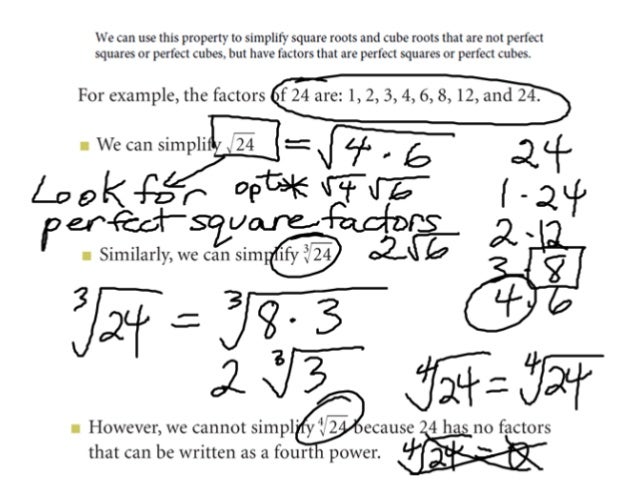 We can use this property to simplify square roots and cube roots that are not perfect
squares or perfect cubes, but have factors that are perfect squares or perfect cubes.
For example, the factors of 24 are: 1, 2, 3, 4, 6, 8, 12, and 24.
■ We can simplify √24 = √4 · 6
24
Look for opt* √4 √6
1 · 24
perfect square factors
2 · 12
■ Similarly, we can simplify ∛24 2√6
3 · 8
4 · 6
∛24 = ∛8 · 3
2 ∛3
∜24 = ∜24
■ However, we cannot simplify ∜24 because 24 has no factors
that can be written as a fourth power. ∜24 =